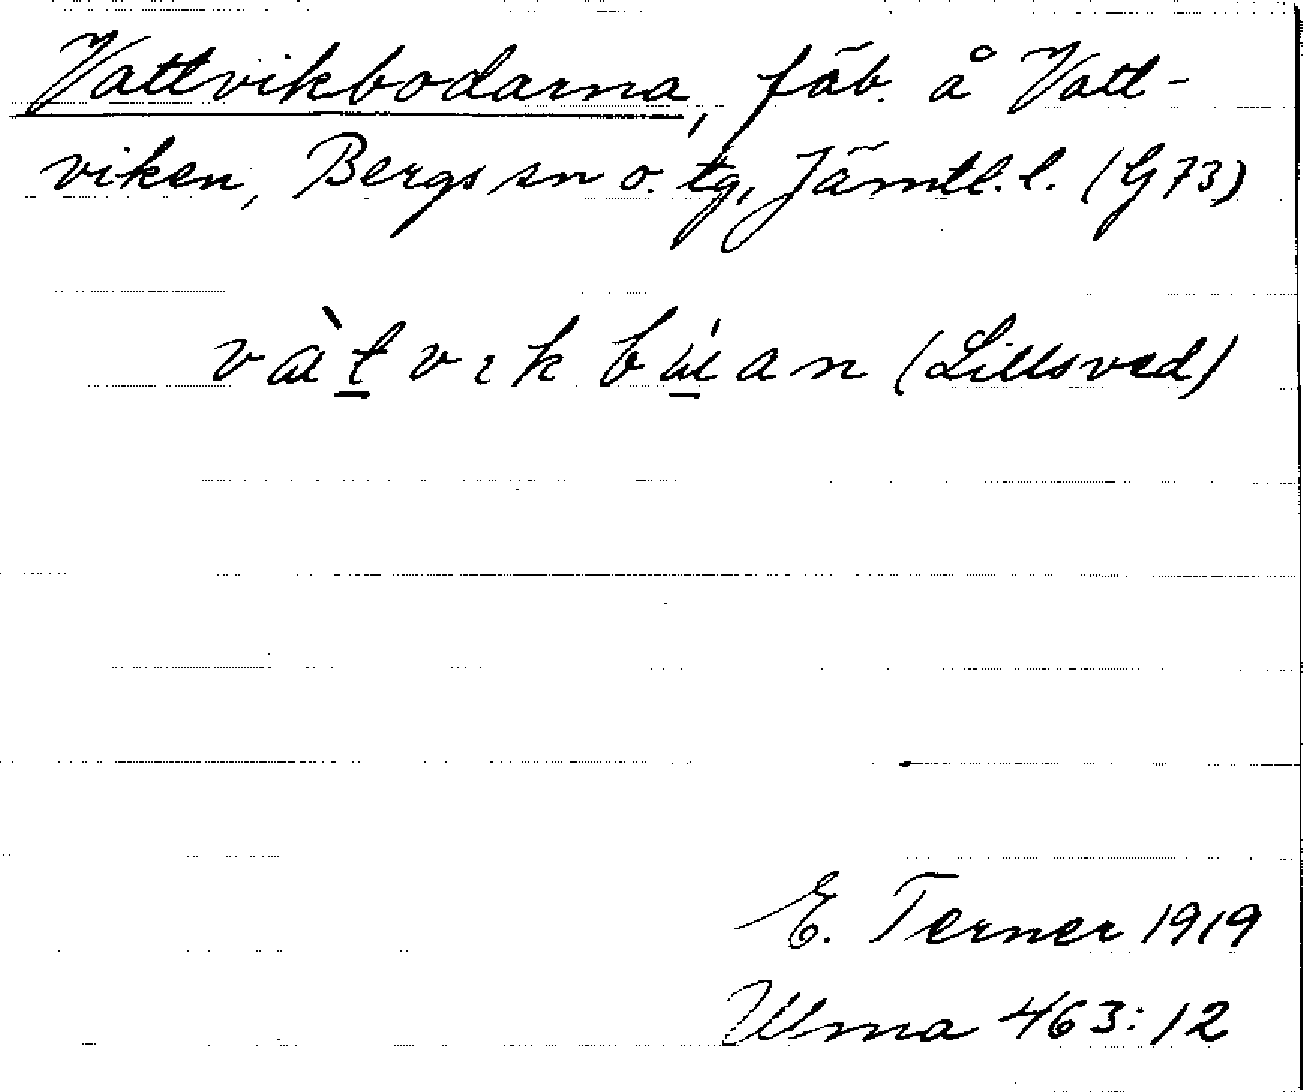 Vattvikbodarna, fäb. å Vatt-
viken, Bergs sn o. tg, Jämtl. l. (G 73)
(Lillsved)
E. Terner 1919
Ulma 463:12